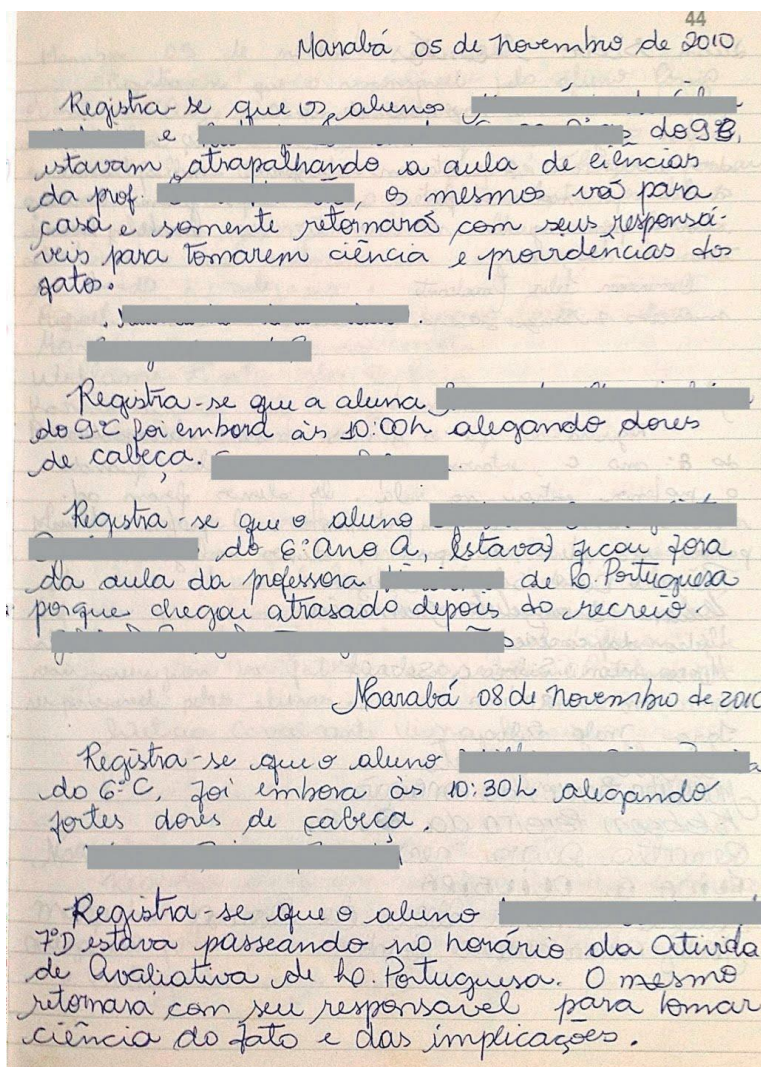 44
Marabá 05 de novembro de 2010
Registra-se que os alunos
e do 9º B,
estavam atrapalhando a aula de ciências
da prof. , os mesmos vá para
casa e somente retornará com seus responsá-
veis para tomarem ciência e providências dos
fatos.
Registra-se que a aluna
do 9º C foi embora às 10:00h alegando dores
de cabeça.
Registra-se que o aluno
do 6º Ano A, (estava) ficou fora
da aula da professora de Lo. Portuguesa
porque chegou atrasado depois do recreio.
Marabá 08 de novembro de 2010
Registra-se que o aluno
do 6º C, foi embora às 10:30h alegando
fortes dores de cabeça.
Registra-se que o aluno
7ºD estava passeando no horário da Ativida
de Avaliativa de Lo. Portuguesa. O mesmo
retornará com seu responsável para tomar
ciência do fato e das implicações.